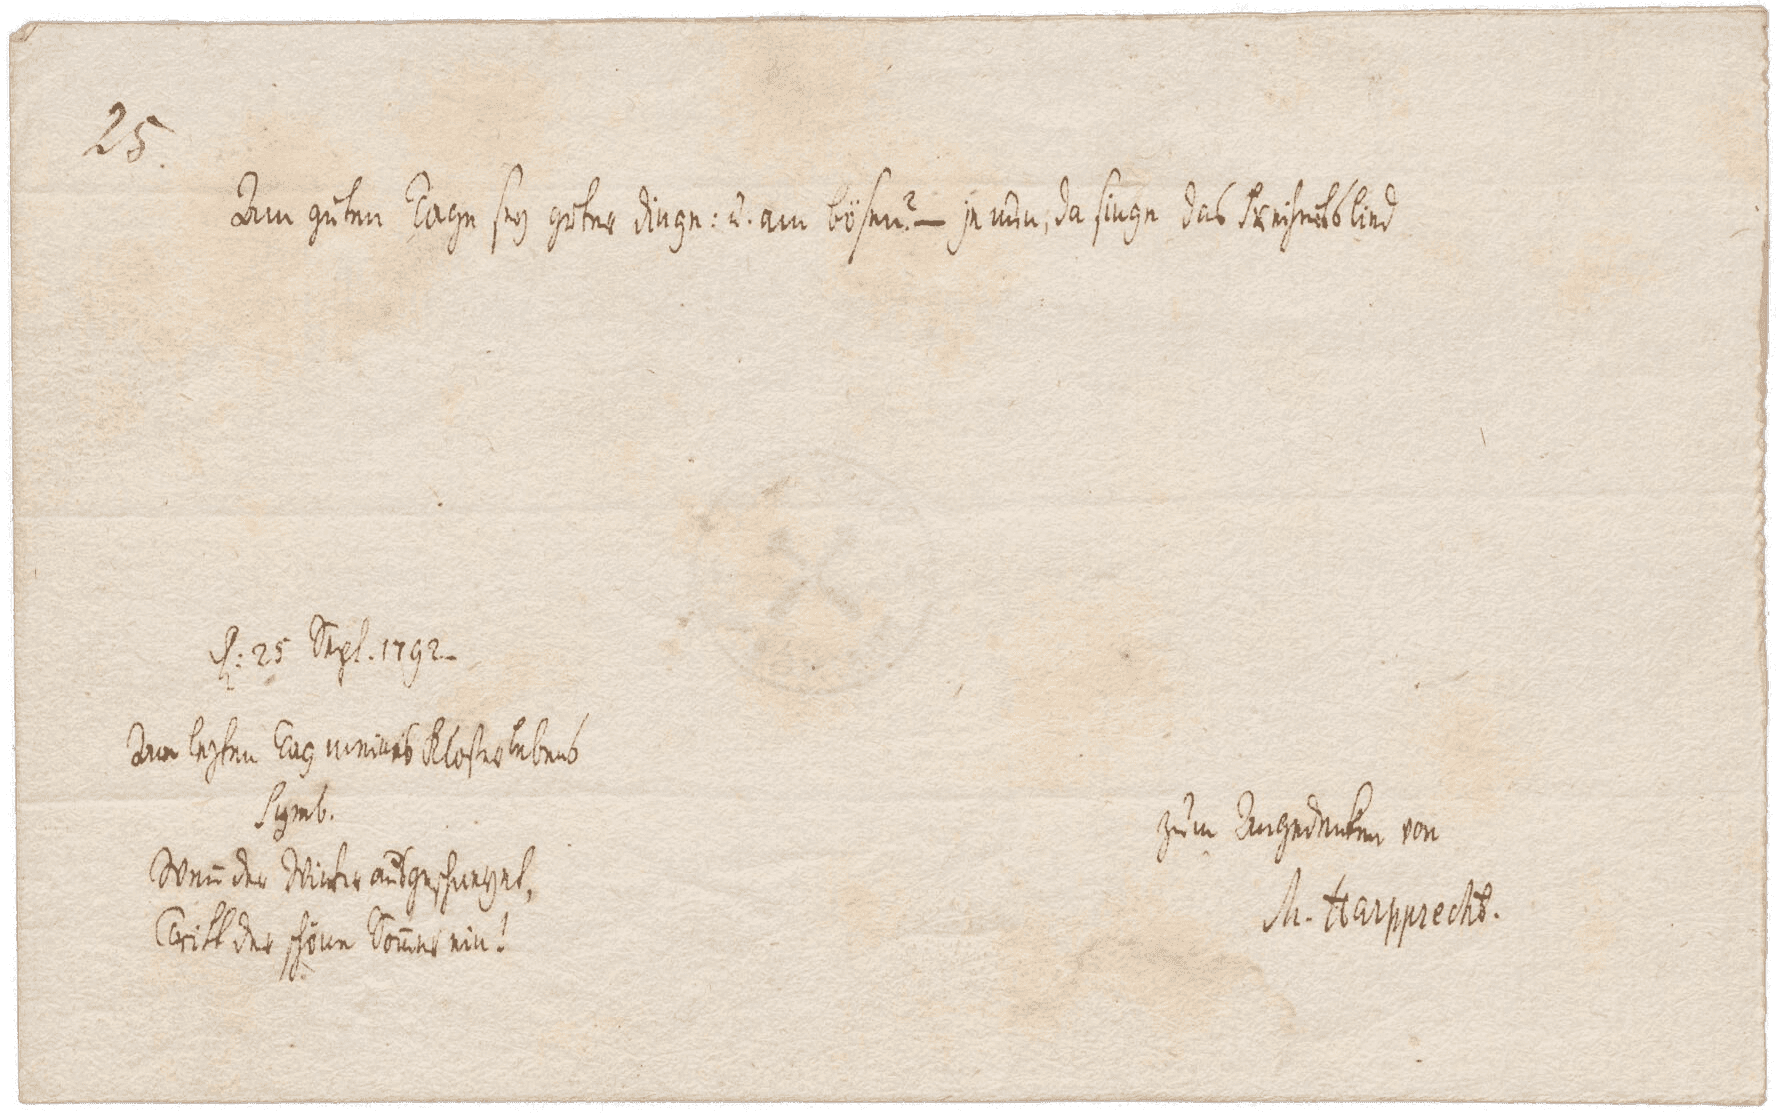 25.
Am guten Tage sey guter dinge: u. am bösen? — je nun, da singe das Freiheitslied
d. 25 Sept. 1792.
Am lezten Tag meines Klosterlebens
Symb.
Wenn der Winter ausgeschneyet,
Tritt der schöne Sommer ein!
zum Angedenken von
M. Harpprecht.